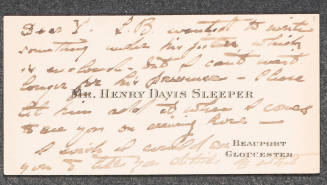 Dear Y. L. B. wanted to write
something under his picture which
is enclosed - but I can't wait
longer for his presence - please
let him add it when I come
MR. HENRY DAVIS SLEEPER
to see you on here -
I wish I could
BEAUPORT
GLOUCESTER
you to